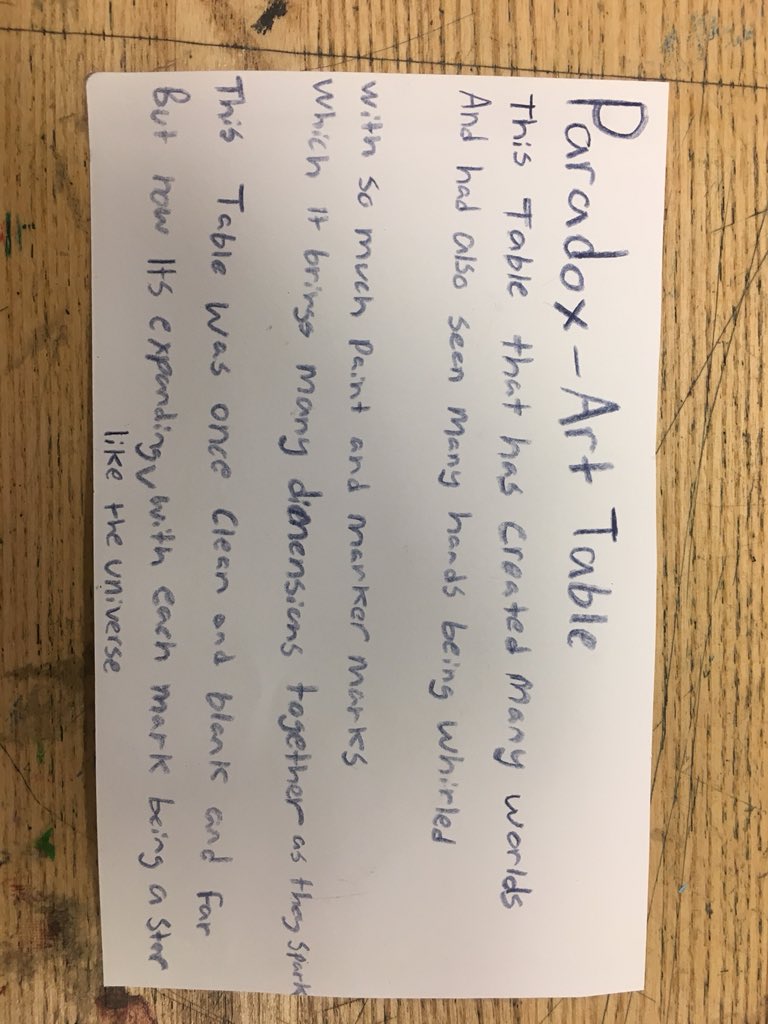 Paradox - Art Table
This Table that has Created many worlds
And had also seen many hands being whirled
with so much paint and marker marks
which it brings many dimensions together as they spark
This Table was once Clean and blank and far
But now Its expanding ∨ with each mark being a star
like the universe